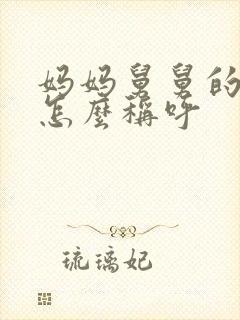 妈妈舅舅的
怎麼稱呼
琉璃妃